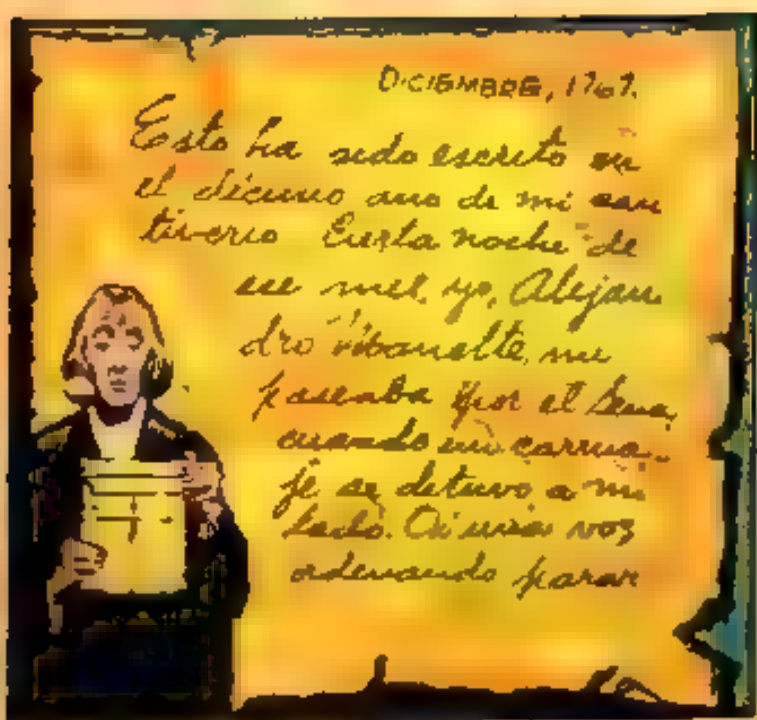 DICIEMBRE, 1767.
Esto ha sido escrito en
el décimo año de mi cau
tiverio Cierta noche de
yo, Alejan
dro
paseaba por el Sena,
cuando un carrua-
je se detuvo a mi
lado. Oí una voz
ordenando parar